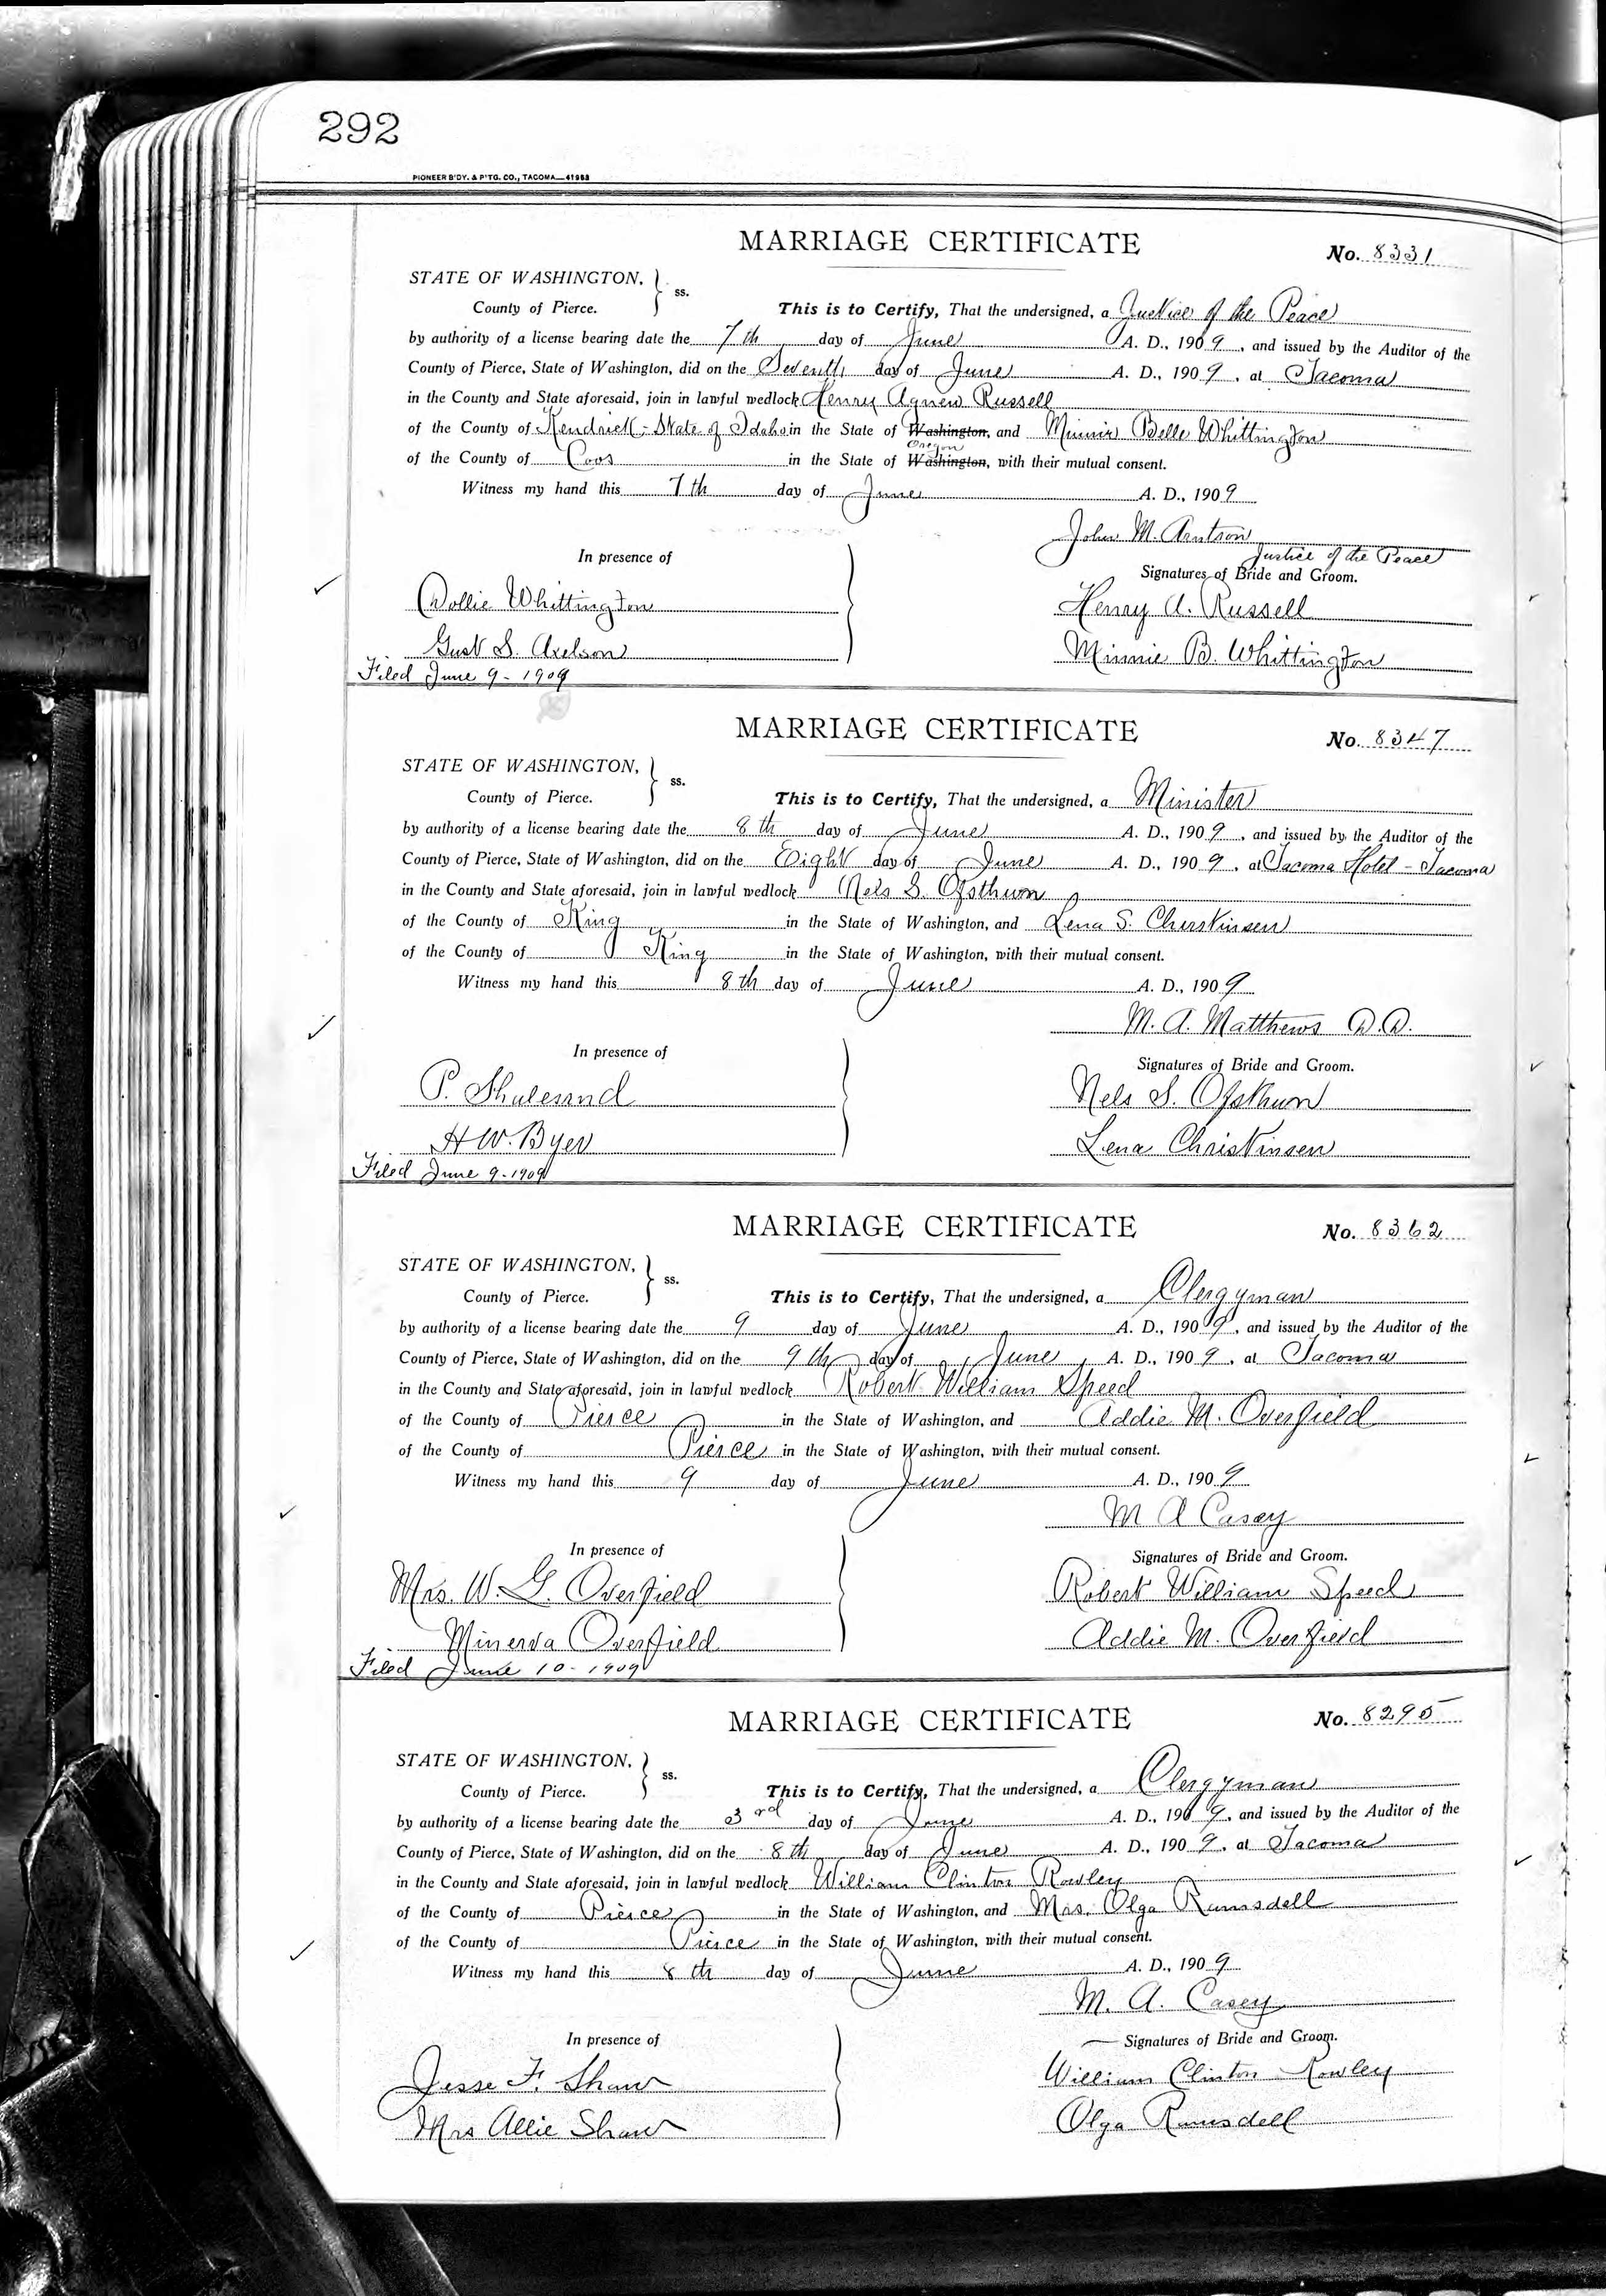 292
PIONEER B'DY. & P'TG. CO., TACOMA—41963
MARRIAGE CERTIFICATE
No. 8331
STATE OF WASHINGTON, } ss.
County of Pierce.
This is to Certify, That the undersigned, a Justice of the Peace
by authority of a license bearing date the 7th day of June A. D., 1909, and issued by the Auditor of the
County of Pierce, State of Washington, did on the Seventh day of June A. D., 1909, at Tacoma
in the County and State aforesaid, join in lawful wedlock Henry Agnew Russell
of the County of Kendrick - State of Idaho in the State of Washington, and Minnie Belle Whittington
Oregon
of the County of Coos in the State of Washington, with their mutual consent.
Witness my hand this 7th day of June A. D., 1909
John M. Arntson
Justice of the Peace
In presence of
Signatures of Bride and Groom.
Dollie Whittington
Henry A. Russell
Gust S. Axelson
Minnie B. Whittington
Filed June 9 - 1909
MARRIAGE CERTIFICATE
No. 8347
STATE OF WASHINGTON, } ss.
County of Pierce.
This is to Certify, That the undersigned, a Minister
by authority of a license bearing date the 8th day of June A. D., 1909, and issued by the Auditor of the
County of Pierce, State of Washington, did on the Eight day of June A. D., 1909, at Tacoma Hotel - Tacoma
in the County and State aforesaid, join in lawful wedlock Nels S. Ofsthun
of the County of King in the State of Washington, and Lena S. Christinsen
of the County of King in the State of Washington, with their mutual consent.
Witness my hand this 8th day of June A. D., 1909
M. A. Matthews D.D.
In presence of
Signatures of Bride and Groom.
P.
Nels S. Ofsthun
H W. Byer
Lena Christinsen
Filed June 9 - 1909
MARRIAGE CERTIFICATE
No. 8362
STATE OF WASHINGTON, } ss.
County of Pierce.
This is to Certify, That the undersigned, a Clergyman
by authority of a license bearing date the 9 day of June A. D., 1909, and issued by the Auditor of the
County of Pierce, State of Washington, did on the 9th day of June A. D., 1909, at Tacoma
in the County and State aforesaid, join in lawful wedlock Robert William Speed
of the County of Pierce in the State of Washington, and Addie M. Overfield
of the County of Pierce in the State of Washington, with their mutual consent.
Witness my hand this 9 day of June A. D., 1909
M A Casey
In presence of
Signatures of Bride and Groom.
Mrs. W. G. Overfield
Robert William Speed
Minerva Overfield
Addie M. Overfield
Filed June 10 - 1909
MARRIAGE CERTIFICATE
No. 8295
STATE OF WASHINGTON, } ss.
County of Pierce.
This is to Certify, That the undersigned, a Clergyman
by authority of a license bearing date the 3rd day of June A. D., 1909, and issued by the Auditor of the
County of Pierce, State of Washington, did on the 8th day of June A. D., 1909, at Tacoma
in the County and State aforesaid, join in lawful wedlock William Clinton Rowley
of the County of Pierce in the State of Washington, and Mrs. Olga Ramsdell
of the County of Pierce in the State of Washington, with their mutual consent.
Witness my hand this 8th day of June A. D., 1909
M. A. Casey
In presence of
Signatures of Bride and Groom.
Jesse F. Shaw
William Clinton Rowley
Mrs Allie Shaw
Olga Ramsdell